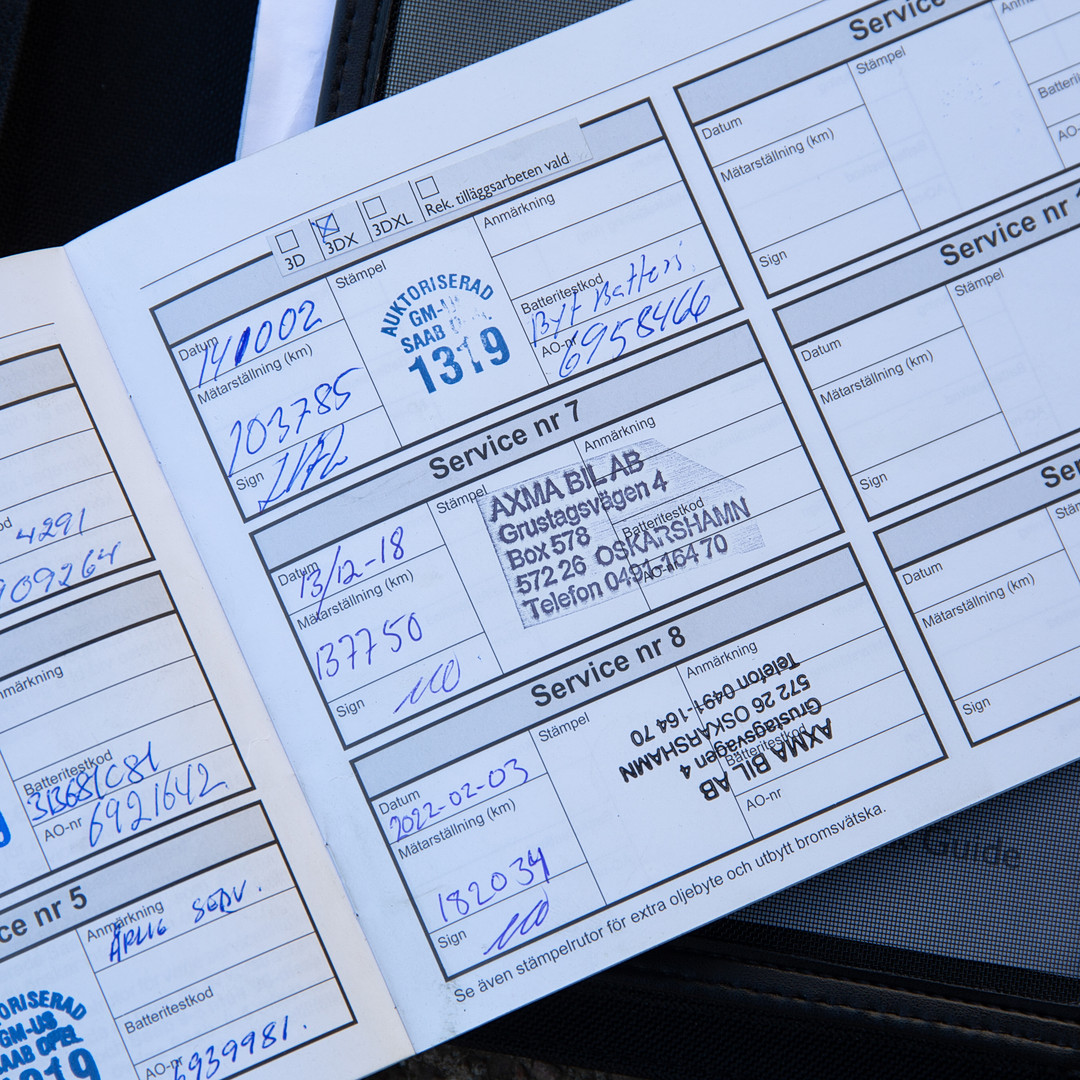 4291
909264
nmärkning
Batteritestkod
31368IC81
AO-nr 6921642
ce nr 5
Anmärkning
ÅRLIG SERV.
Batteritestkod
AO-nr 6939981.
3D
3DX
3DXL
Rek. tilläggsarbeten vald
Datum
141002
Mätarställning (km)
103785
Sign
Stämpel
AUKTORISERAD
GM-
SAAB
1319
Anmärkning
Batteritestkod
Byt Batteri
AO-nr
6958466
Service nr 7
Datum
13/12-18
Mätarställning (km)
137750
Sign
Stämpel
AXMA BIL AB
Grustagsvägen 4
Box 578
572 26 OSKARSHAMN
Telefon 0491-164 70
Anmärkning
Batteritestkod
AO-nr
Service nr 8
Datum
2022-02-03
Mätarställning (km)
182034
Sign
Stämpel
AXMA BIL AB
Grustagsvägen 4
572 26 OSKARSHAMN
Telefon 0491-164 70
Anmärkning
Batteritestkod
AO-nr
Se även stämpelrutor för extra oljebyte och utbytt bromsvätska.
Service
Datum
Mätarställning (km)
Sign
Stämpel
Service nr
Datum
Mätarställning (km)
Sign
Stämpel
Datum
Mätarställning (km)
Sign
AUKTORISERAD
GM-US
SAAB OPEL
1319